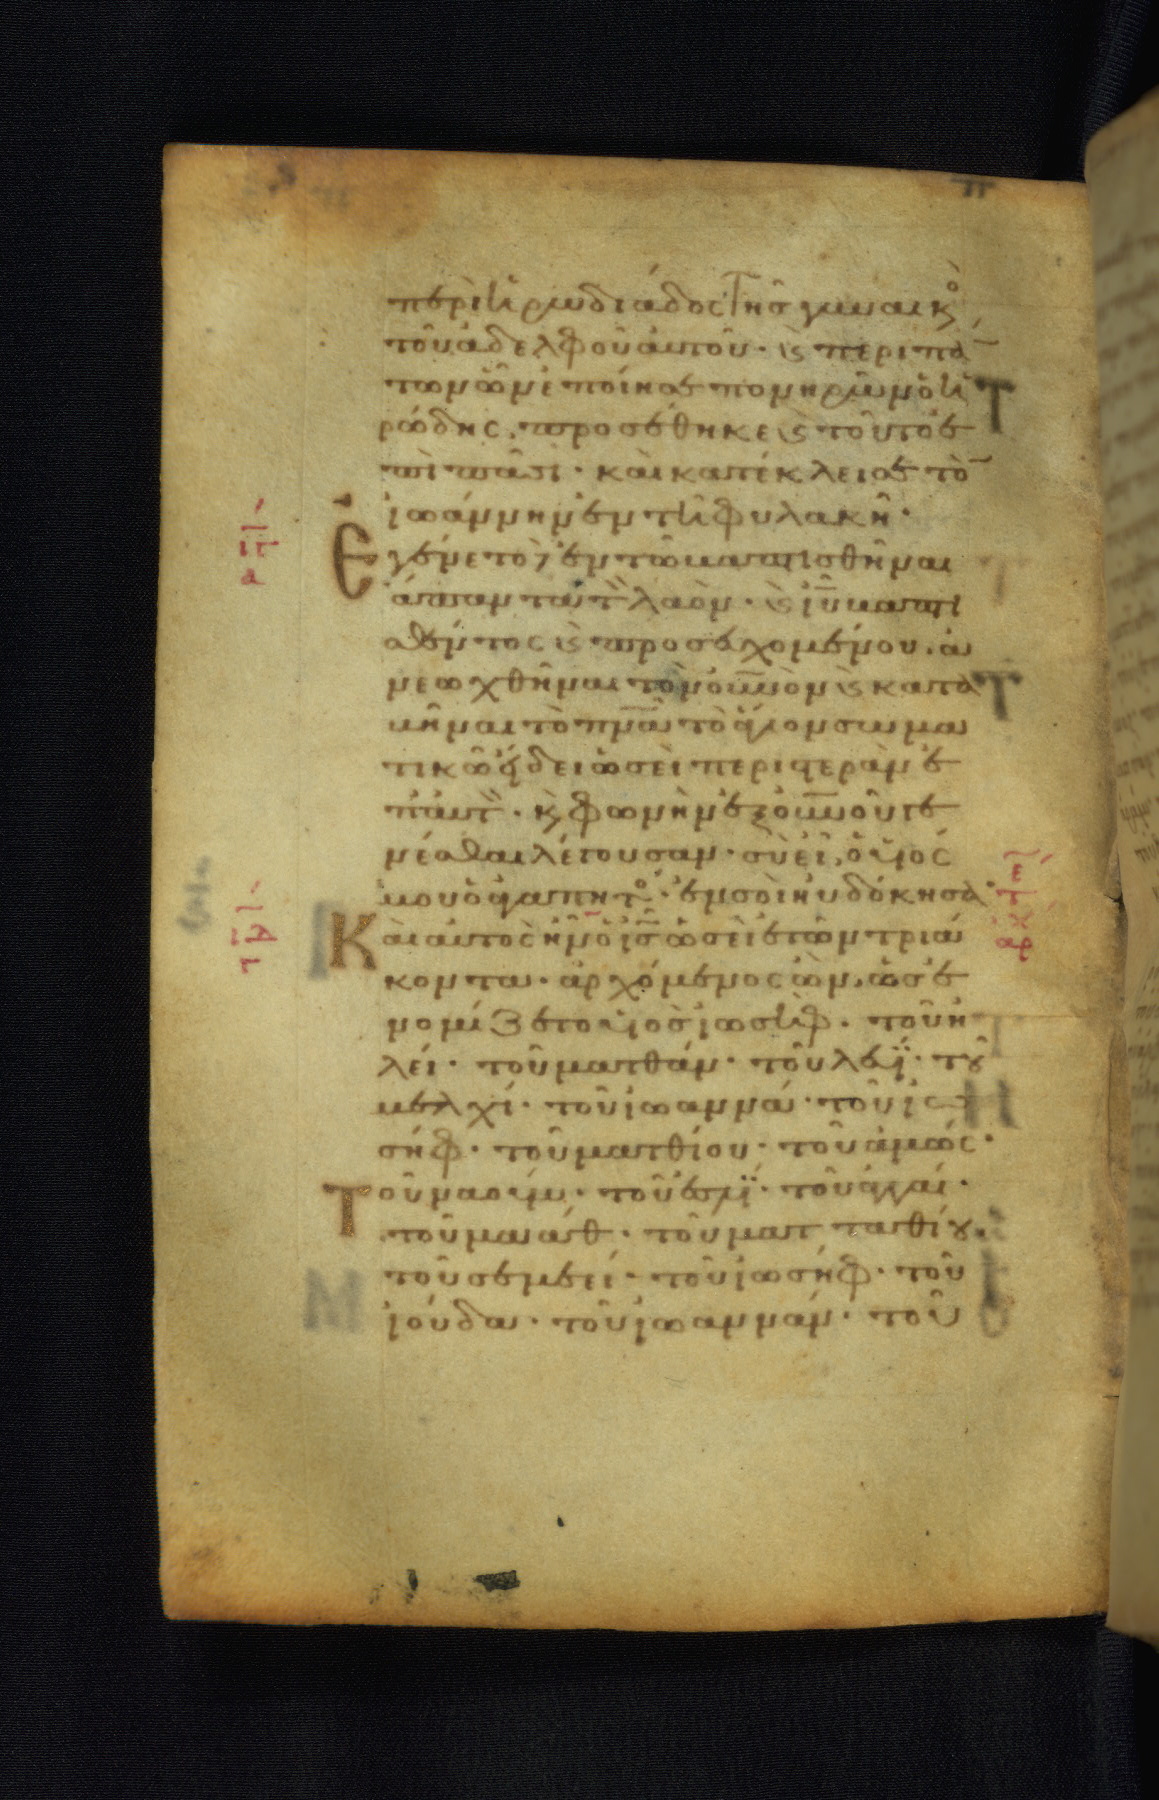 περὶ ἡρωδιάδος τῆσ γυναικὸ
τοῦ ἀδελφοῦ ἀυτοῦ · ϗ περὶ πά
των ὧν ἐποίησε πονηρῶν ὁ ἡ
ρώδης, προσέθηκε ϗ τοῦτο ἐ
πὶ πᾶσι · καὶ κατέκλεισε τὸ
ἰωάννην ἐν τῆ φυλακῆ ·
Εγένετο δὲ ἐν τῶ βαπτισθῆναι
ἅπαντα τὸ λαὸν · ϗ ιῦ βαπτι
σθέντος ϗ προσευχομένου, ἀ
νεωχθῆναι τὸν οὐνὸν ϗ καταβ
βῆναι τὸ πνα τὸ ἅγιον σωμα
τικῶ εἴδει ὡσεὶ περιστερὰν ἐ
π᾽ ἀυτὸ · ϗ φωνὴν ἐξ οὐνοῦ γε
νέσθαι λέγουσαν · σὺ εἶ ὁ υἱός
μου ὁ ἀγαπητὸ · ἐν σοὶ ηυδόκησα
Καὶ αυτὸς ἦν ὁ ις ὡσεὶ ἐτῶν τριά
κοντα · ἀρχόμενος ὢν, ὡς ἐ
νομίζετο υἱὸσ ἰωσὴφ · τοῦ ἡ
λεί · τοῦ ματθάν · τοῦ λευΐ · τοῦ
μελχί · τοῦ ἰωαννά · τοῦ ἰω
σήφ · τοῦ ματθίου · τοῦ ἀμώς ·
Τοῦ ναούμ · τοῦ ἐσλΐ · τοῦ ἀγγαί ·
τοῦ μαάθ · τοῦ ματταθίου ·
τοῦ σεμεεί · τοῦ ἰωσήφ · τοῦ
ἰούδα · τοῦ ἰωαννάν · τοῦ